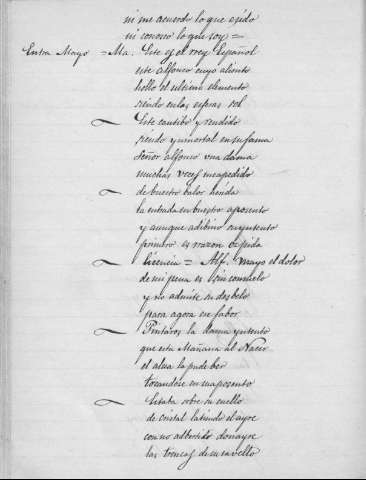 ni me acuerdo lo que e sido
ni conosco lo que soy =
Entra Mayo = Ma. Este es el rey Español
este alfonso cuyo aliento
hallo el ultimo elemento
siendo en las esferas sol
Este cautibo y rendido
siendo ynmortal en su fama
señor alfonso una dama
muchas veces a pedido
de buestro balor
la entrada en buestro aposento
y aunque adibino su yntento
primero es razon os pida
licencia = Alf. Mayo el dolor
de mi pena es sin consuelo
y no admite su desbelo
para agora en fabor
Pintaros la dama yntento
que esta Mañana al Nacer
el alua la pude ber
tocandose en su aposento
Estaba sobre su cuello
de cristal latiendo el ayre
con no adbertido donayre
las trenças de su cavello